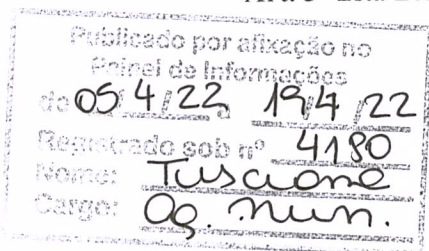 Publicado por afixação no
Painel de Informações
de 05/4/22 a 19/4/22
Registrado sob nº 4180
Nome: Tuscione
Cargo: Ag. mun.